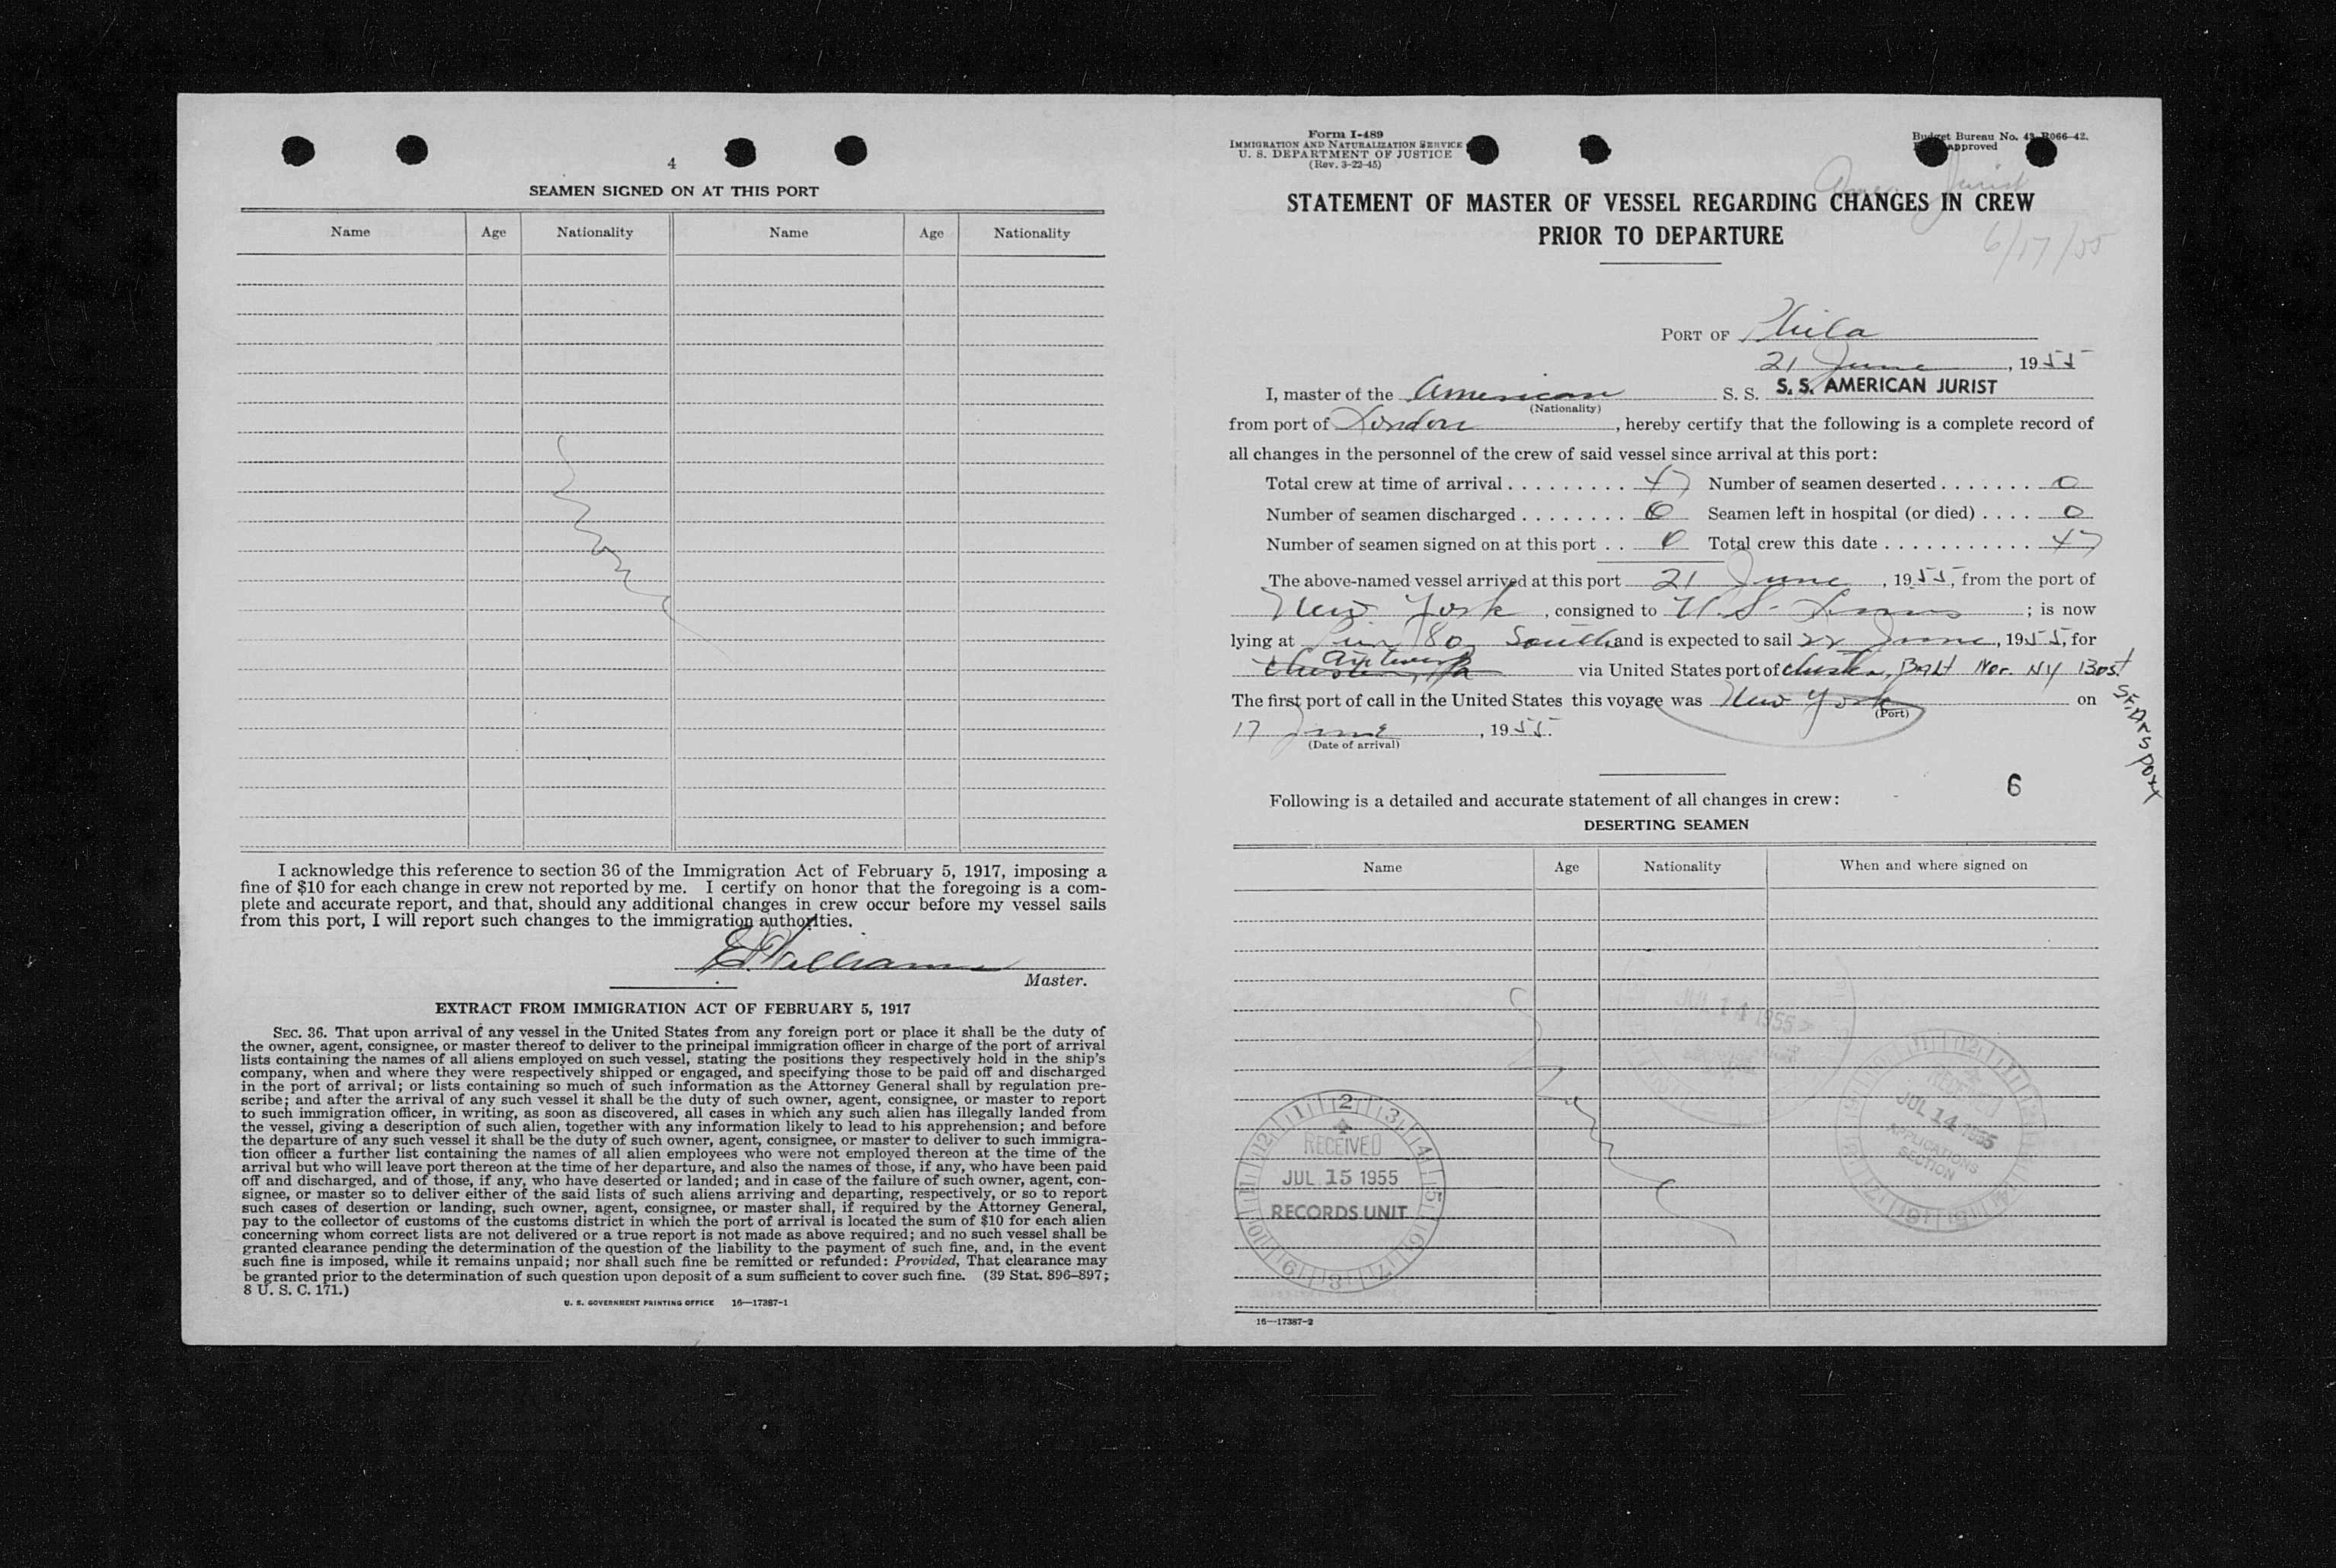 4
SEAMEN SIGNED ON AT THIS PORT
Name Age Nationality Name Age Nationality
I acknowledge this reference to section 36 of the Immigration Act of February 5, 1917, imposing a
fine of $10 for each change in crew not reported by me. I certify on honor that the foregoing is a com-
plete and accurate report, and that, should any additional changes in crew occur before my vessel sails
from this port, I will report such changes to the immigration authorities.
Williams
Master.
EXTRACT FROM IMMIGRATION ACT OF FEBRUARY 5, 1917
SEC. 36. That upon arrival of any vessel in the United States from any foreign port or place it shall be the duty of
the owner, agent, consignee, or master thereof to deliver to the principal immigration officer in charge of the port of arrival
lists containing the names of all aliens employed on such vessel, stating the positions they respectively hold in the ship's
company, when and where they were respectively shipped or engaged, and specifying those to be paid off and discharged
in the port of arrival; or lists containing so much of such information as the Attorney General shall by regulation pre-
scribe; and after the arrival of any such vessel it shall be the duty of such owner, agent, consignee, or master to report
to such immigration officer, in writing, as soon as discovered, all cases in which any such alien has illegally landed from
the vessel, giving a description of such alien, together with any information likely to lead to his apprehension; and before
the departure of any such vessel it shall be the duty of such owner, agent, consignee, or master to deliver to such immigra-
tion officer a further list containing the names of all alien employees who were not employed thereon at the time of the
arrival but who will leave port thereon at the time of her departure, and also the names of those, if any, who have been paid
off and discharged, and of those, if any, who have deserted or landed; and in case of the failure of such owner, agent, con-
signee, or master so to deliver either of the said lists of such aliens arriving and departing, respectively, or so to report
such cases of desertion or landing, such owner, agent, consignee, or master shall, if required by the Attorney General,
pay to the collector of customs of the customs district in which the port of arrival is located the sum of $10 for each alien
concerning whom correct lists are not delivered or a true report is not made as above required; and no such vessel shall be
granted clearance pending the determination of the question of the liability to the payment of such fine, and, in the event
such fine is imposed, while it remains unpaid; nor shall such fine be remitted or refunded: Provided, That clearance may
be granted prior to the determination of such question upon deposit of a sum sufficient to cover such fine. (39 Stat. 896–897;
8 U. S. C. 171.)
U. S. GOVERNMENT PRINTING OFFICE 16—17387-1
Form I-489
IMMIGRATION AND NATURALIZATION SERVICE
U. S. DEPARTMENT OF JUSTICE
(Rev. 3-22-45)
Budget Bureau No. 43-R066-42.
approved
Amer. Jurist
STATEMENT OF MASTER OF VESSEL REGARDING CHANGES IN CREW
PRIOR TO DEPARTURE
6/17/55
PORT OF Phila
21 June, 1955
I, master of the American S. S. S. S. AMERICAN JURIST
(Nationality)
from port of London, hereby certify that the following is a complete record of
all changes in the personnel of the crew of said vessel since arrival at this port:
Total crew at time of arrival . . . . . . . . . 47 Number of seamen deserted . . . . . . . 0
Number of seamen discharged . . . . . . . . 0 Seamen left in hospital (or died) . . . . 0
Number of seamen signed on at this port . . 0 Total crew this date . . . . . . . . . . . . 47
The above-named vessel arrived at this port 21 June, 1955, from the port of
New York, consigned to U.S. Lines; is now
lying at Pier 80 South and is expected to sail 22 June, 1955, for
Antwerp
Chester, Pa via United States port of Chester, Balt Nor. NY Bost
The first port of call in the United States this voyage was New York on
(Port)
17 June, 1955.
(Date of arrival)
6
Following is a detailed and accurate statement of all changes in crew:
DESERTING SEAMEN
Name Age Nationality When and where signed on
JUL 14 1955
RECEIVED
JUL 14 1955
APPLICATIONS
SECTION
RECEIVED
JUL 15 1955
RECORDS UNIT
16—17387-2